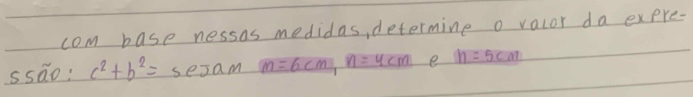 com base nessas medidas, determine o valor da expre-
ssão: c²+b²= sejam m=6cm, n=4cm e h=5cm